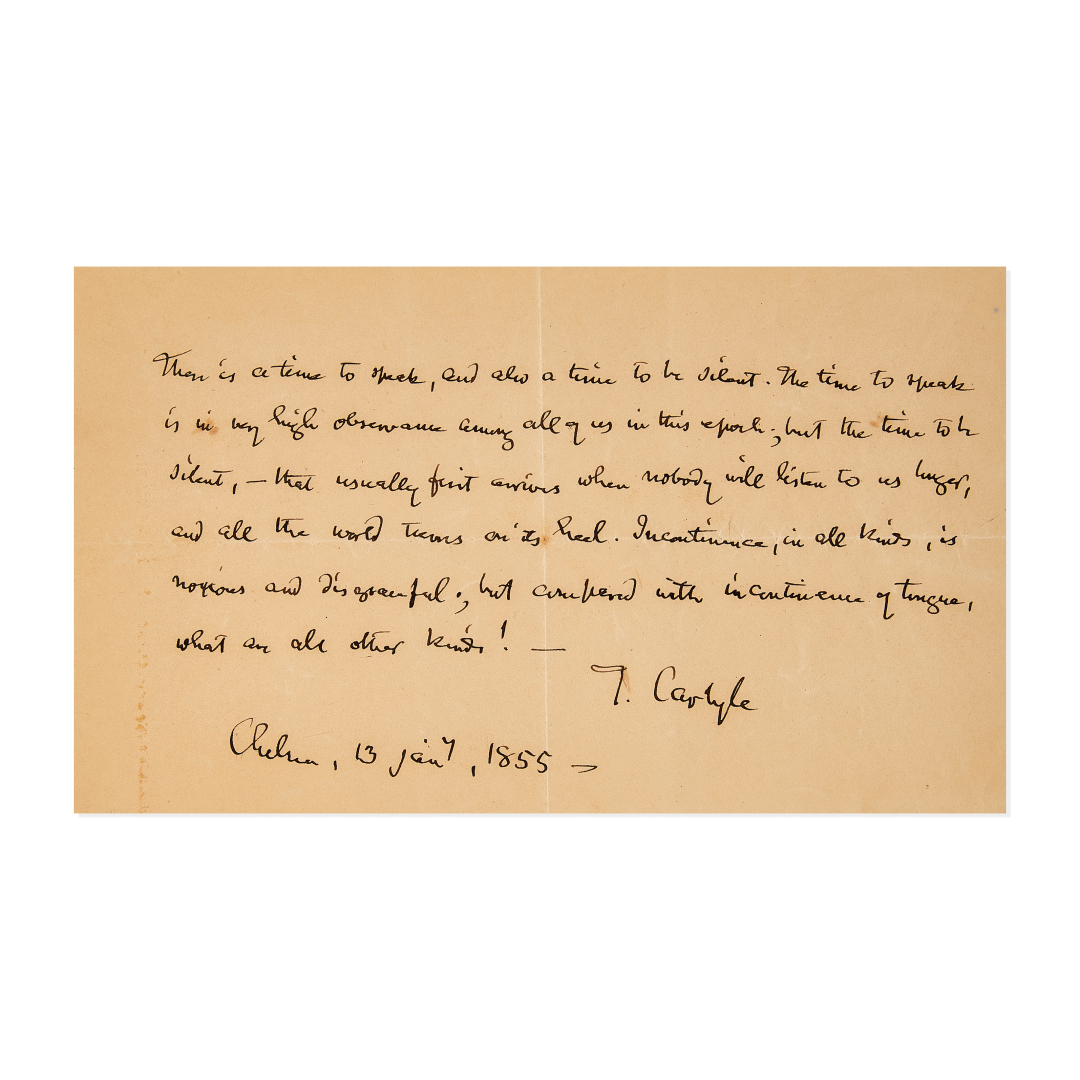 There is a time to speak, and also a time to be silent. The time to speak
is in very high observance among all of us in this epoch; but the time to be
silent, — that usually first arrives when nobody will listen to us longer,
and all the world turns on its heel. Incontinence, in all kinds, is
noxious and disgraceful; but compared with incontinence of tongue,
what are all other kinds! —
T. Carlyle
Chelsea, 13 jany, 1855 —